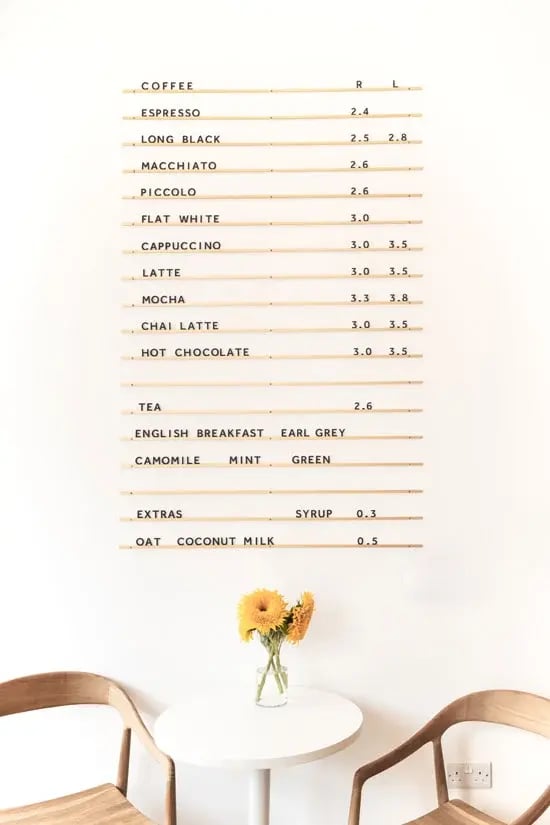 COFFEE R L
ESPRESSO 2.4
LONG BLACK 2.5 2.8
MACCHIATO 2.6
PICCOLO 2.6
FLAT WHITE 3.0
CAPPUCCINO 3.0 3.5
LATTE 3.0 3.5
MOCHA 3.3 3.8
CHAI LATTE 3.0 3.5
HOT CHOCOLATE 3.0 3.5
TEA 2.6
ENGLISH BREAKFAST EARL GREY
CAMOMILE MINT GREEN
EXTRAS SYRUP 0.3
OAT COCONUT MILK 0.5